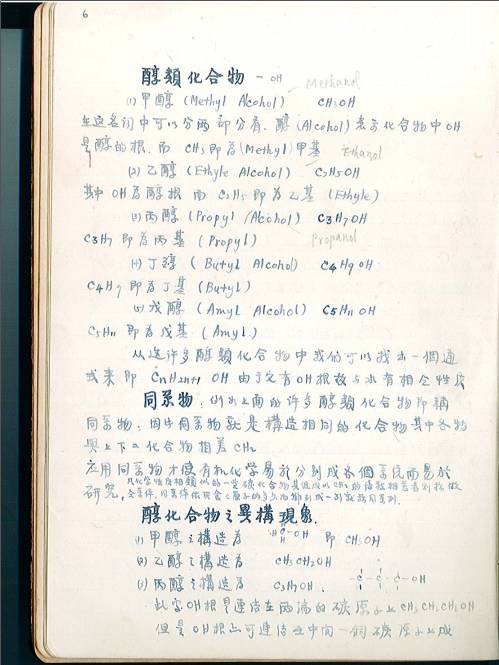 6
醇類化合物 - OH
Methanol
(1) 甲醇 (Methyl Alcohol) CH3OH
在這名詞中可以分兩部分看. 醇 (Alcohol) 表示化合物中OH
是醇的根. 而 CH3 即為 (Methyl) 甲基
Ethanol
(2) 乙醇 (Ethyle Alcohol) C2H5OH
其中 OH 為醇根 而 C2H5 即為乙基 (Ethyle)
(3) 丙醇 (Propyl Alcohol) C3H7OH
C3H7 即為丙基 (Propyl)
Propanol
(4) 丁醇 (Butyl Alcohol) C4H9OH
C4H9 即為丁基 (Butyl)
(5) 戊醇 (Amyl Alcohol) C5H11OH
C5H11 即為戊基 (Amyl)
從這許多醇類化合物中我們可以找出一個通
式來即 CnH2n+1 OH 由于它有OH根故与水有相仝性质
同系物. 例如上面的许多醇類化合物即稱
同系物. 因此同系物就是構造相同的化合物其中各物
與上下二化合物相差CH2
应用同系物才使有机化学易於分别成各個系统而易於
研究.
醇化合物之異構現象.
(1) 甲醇之構造為 即 CH3OH
(2) 乙醇之構造為 CH3CH2OH
(3) 丙醇之構造為 C3H7OH. -C-C-C-OH
此字OH根是連结在两端的碳原子上 CH3CH2CH2OH
但是OH根亦可連结在中间一個碳原子上成